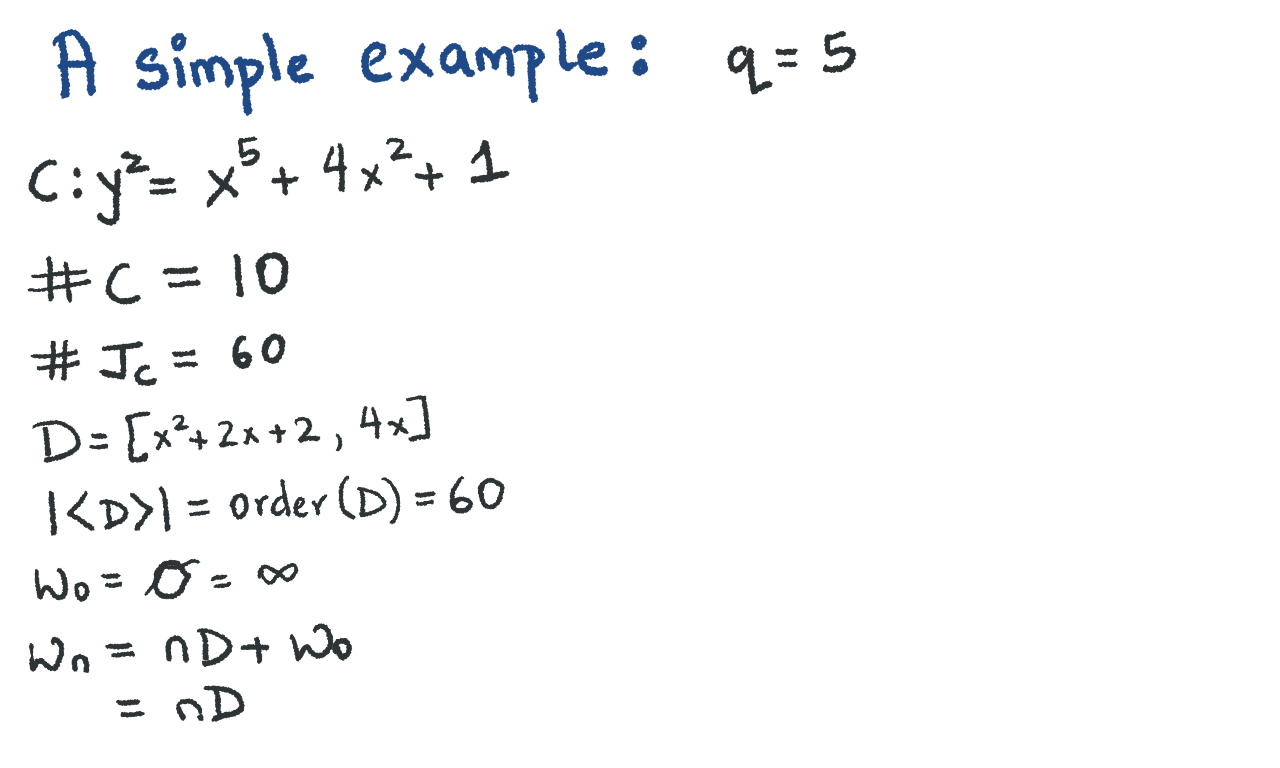 A simple example: q = 5
C: y² = x⁵ + 4x² + 1
# C = 10
# J_C = 60
D = [x² + 2x + 2, 4x]
|<D>| = order(D) = 60
W₀ = O = ∞
Wₙ = nD + W₀
= nD